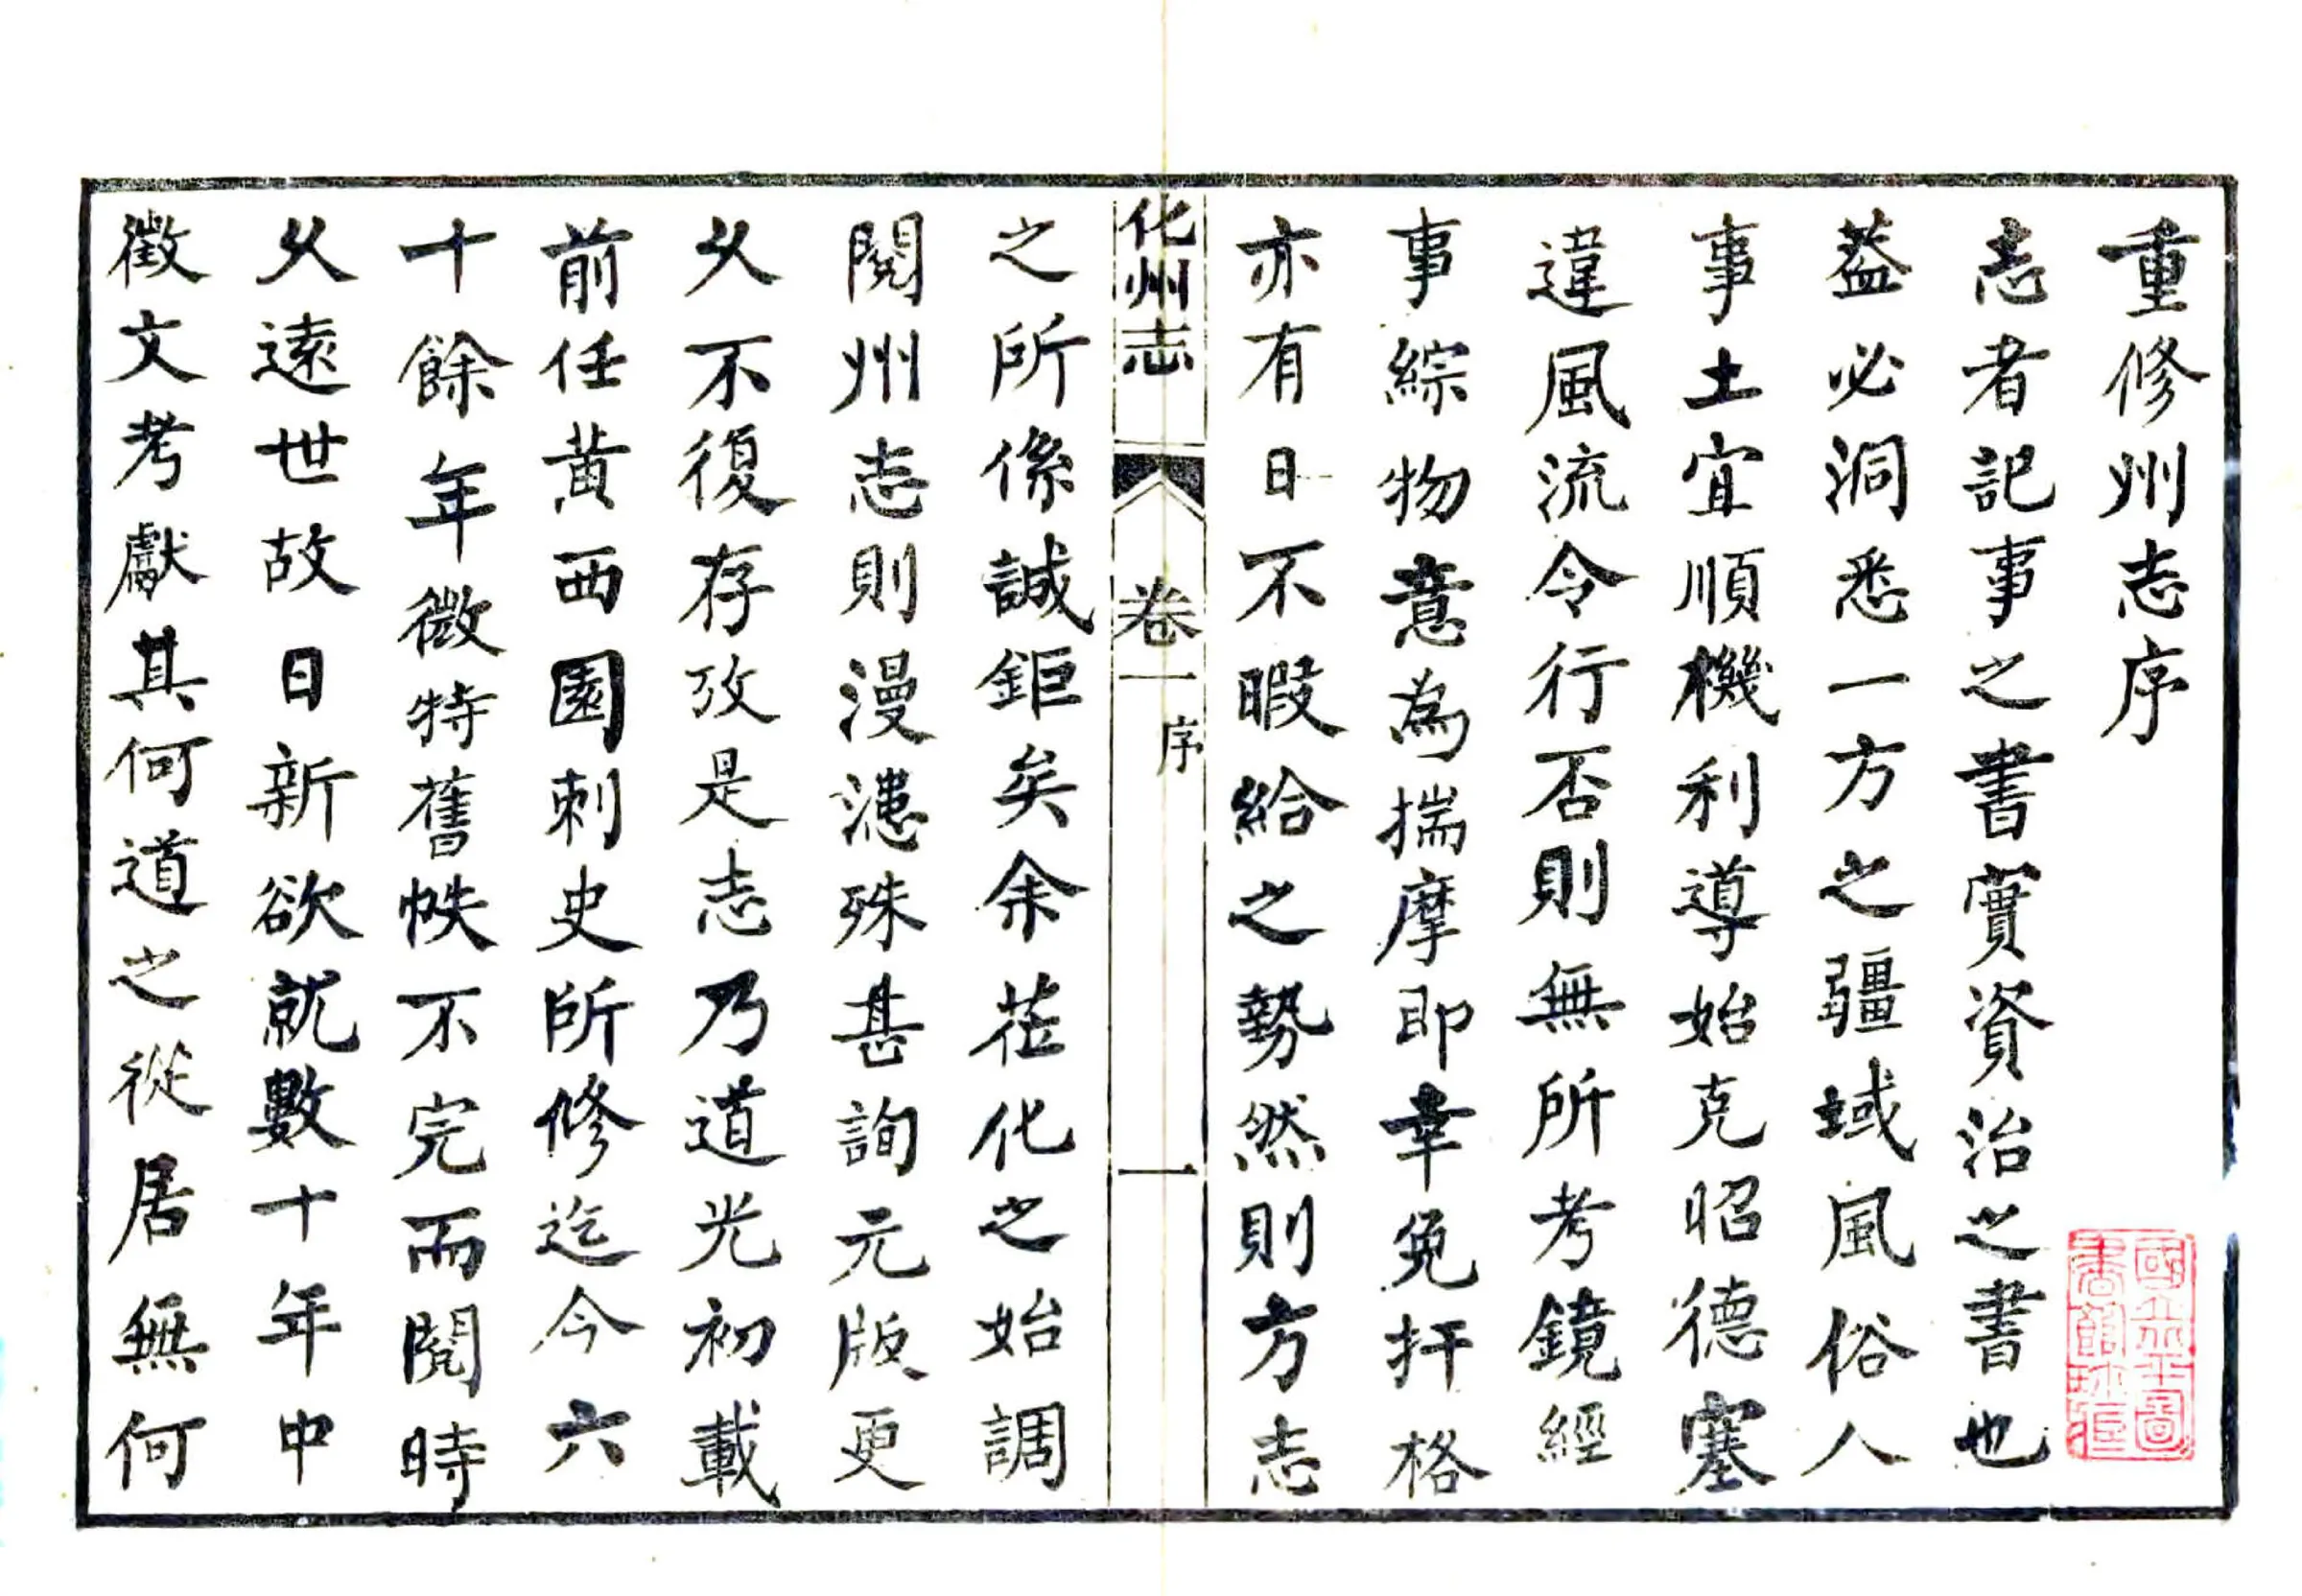 重修州志序
志者記事之書實資治之書也
葢必洞悉一方之疆域風俗人
事土宜順機利導始克昭德塞
違風流令行否則無所考鏡經
事綜物意為揣摩即幸免扞格
亦有日不暇給之勢然則方志
化州志 卷一 序 一
之所係誠鉅矣余莅化之始調
閱州志則漫漶殊甚詢元版更
乆不復存攷是志乃道光初載
前任黄西園刺史所修迄今六
十餘年微特舊帙不完而閱時
乆遠世故日新欲就數十年中
徵文考獻其何道之從居無何
國立北平圖書館珍藏